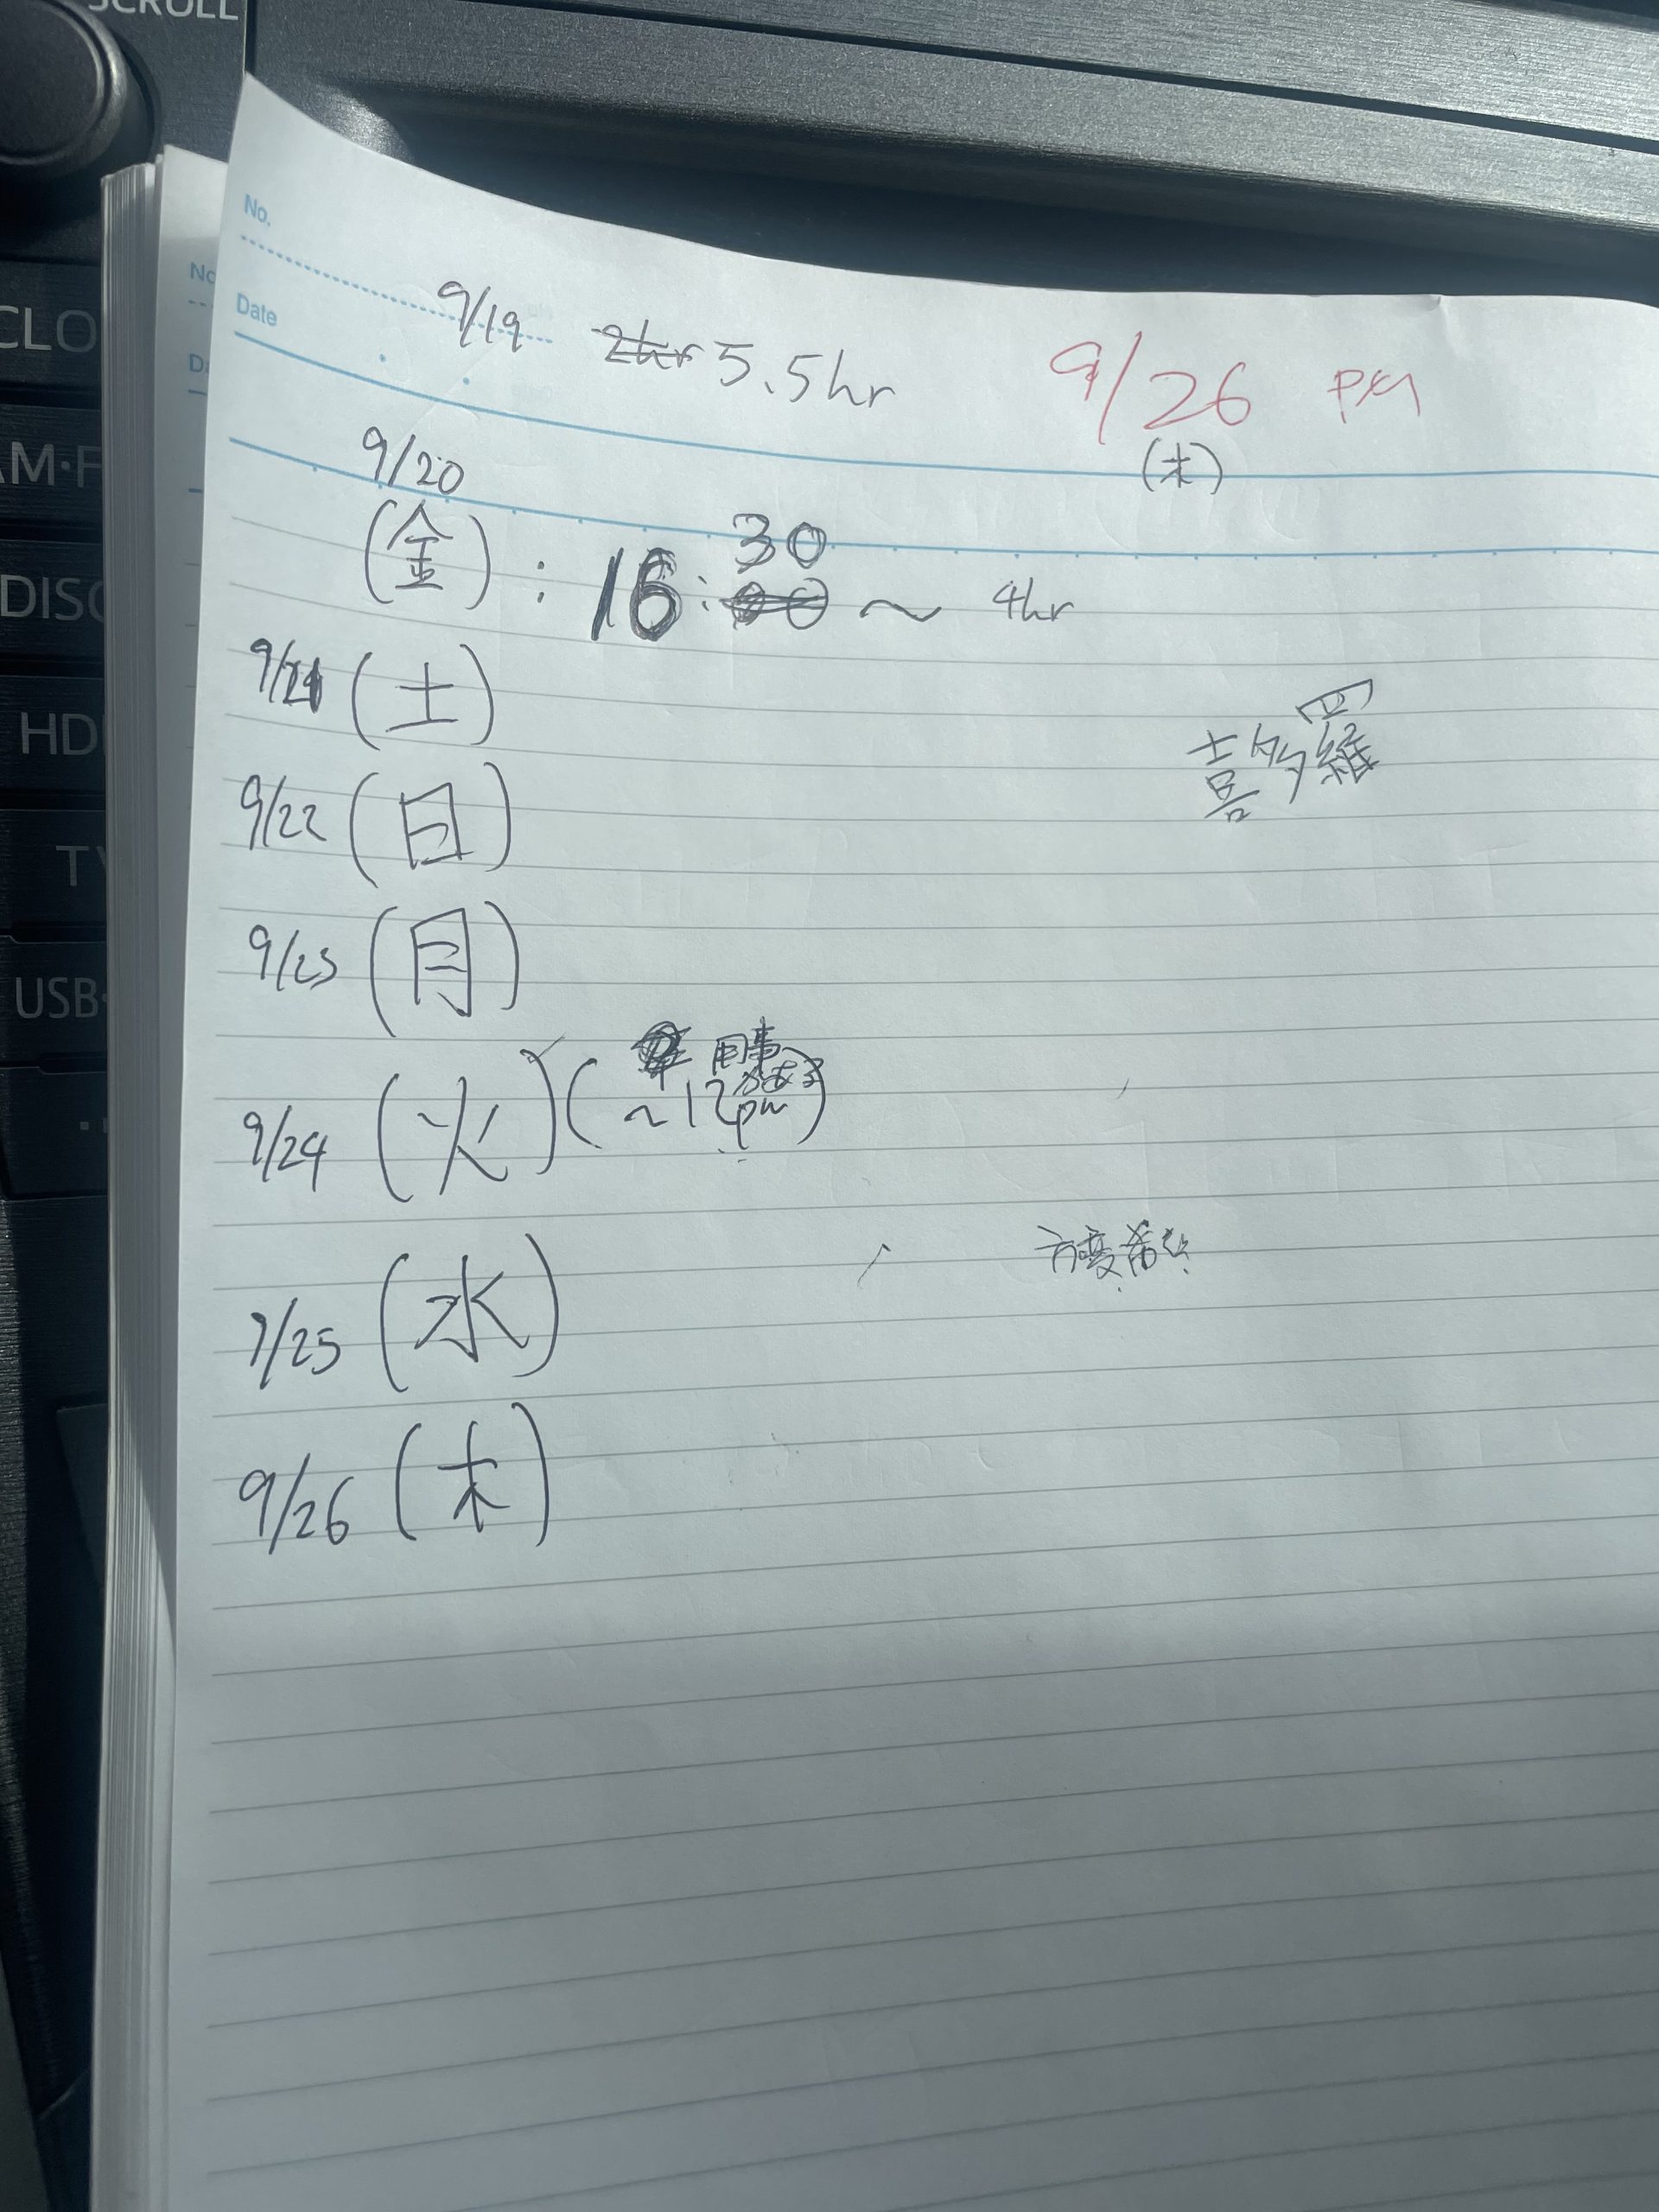 SCROLL
No.
Date
9/19 2hr 5.5hr
9/26 PM
(木)
9/20
(金) : 16:30 ~ 4hr
9/21 (土)
喜多羅
9/22 (日)
9/23 (月)
9/24 (火) (用事
~12pm)
9/25 (水)
9/26 (木)
DISC
HD
TV
USB